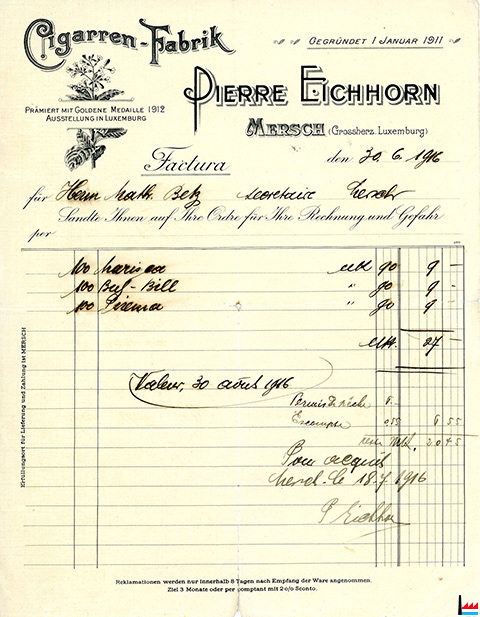 Cigarren-Fabrik
GEGRÜNDET 1 JANUAR 1911
PIERRE EICHHORN
PRÄMIERT MIT GOLDENE MEDAILLE 1912
AUSSTELLUNG IN LUXEMBURG
MERSCH (Grossherz. Luxemburg)
Factura
den 30. 6. 1916
für Herrn Math. Betz secretaire Mersch
Sandte Ihnen auf Ihre Ordre für Ihre Rechnung und Gefahr
per
100 90 9 -
100 Buf-Bill " 90 9 -
100 " 90 9 -
Mk. 27 -
Valeur, 30 août 1916
Permis de pêche 6.-
Escompte 0.55 6 55
reste Mk. 20 45
Pour acquit
Mersch le 18.7.1916
P Eichhorn
Erfüllungsort für Lieferung und Zahlung ist MERSCH
Reklamationen werden nur innerhalb 8 Tagen nach Empfang der Ware angenommen.
Ziel 3 Monate oder per comptant mit 2 o/o Sconto.